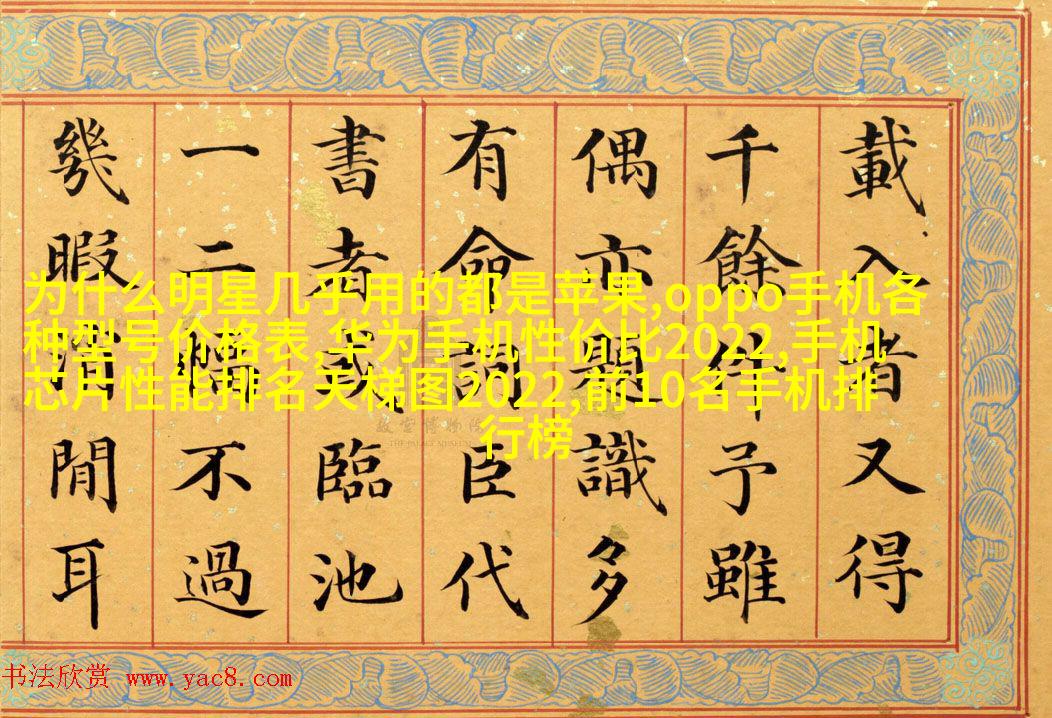 載入者又得
千餘件予雖
偶亦題識多
有命詞臣代
書者或臨池
一二幅不過
幾暇閒耳
为什么明星几乎用的都是苹果,oppo手机各
种型号价格表,华为手机性价比2022,手机
芯片性能排名天梯图2022,前10名手机排
行榜
故宫博物院
THE PALACE MUSEUM
书法欣赏 www.yac8.com